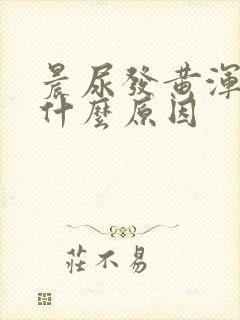 晨尿發黃渾
什麼原因
莊不易